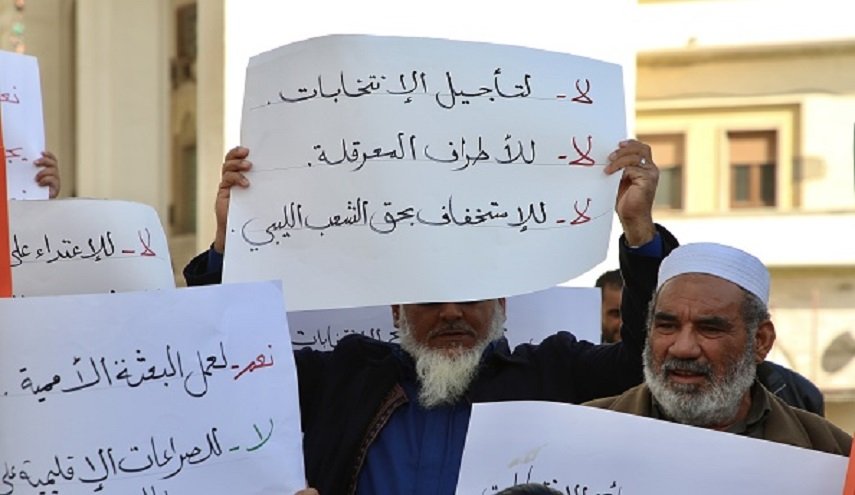 لا - لتأجيل الإنتخابات.
لا - للأطراف المعرقلة.
لا - للإستخفاف بحق الشعب الليبي.
لا - للإعتداء على
نعم - لعمل البعثة الأممية.
لا - للصراعات الإقليمية على
نعم